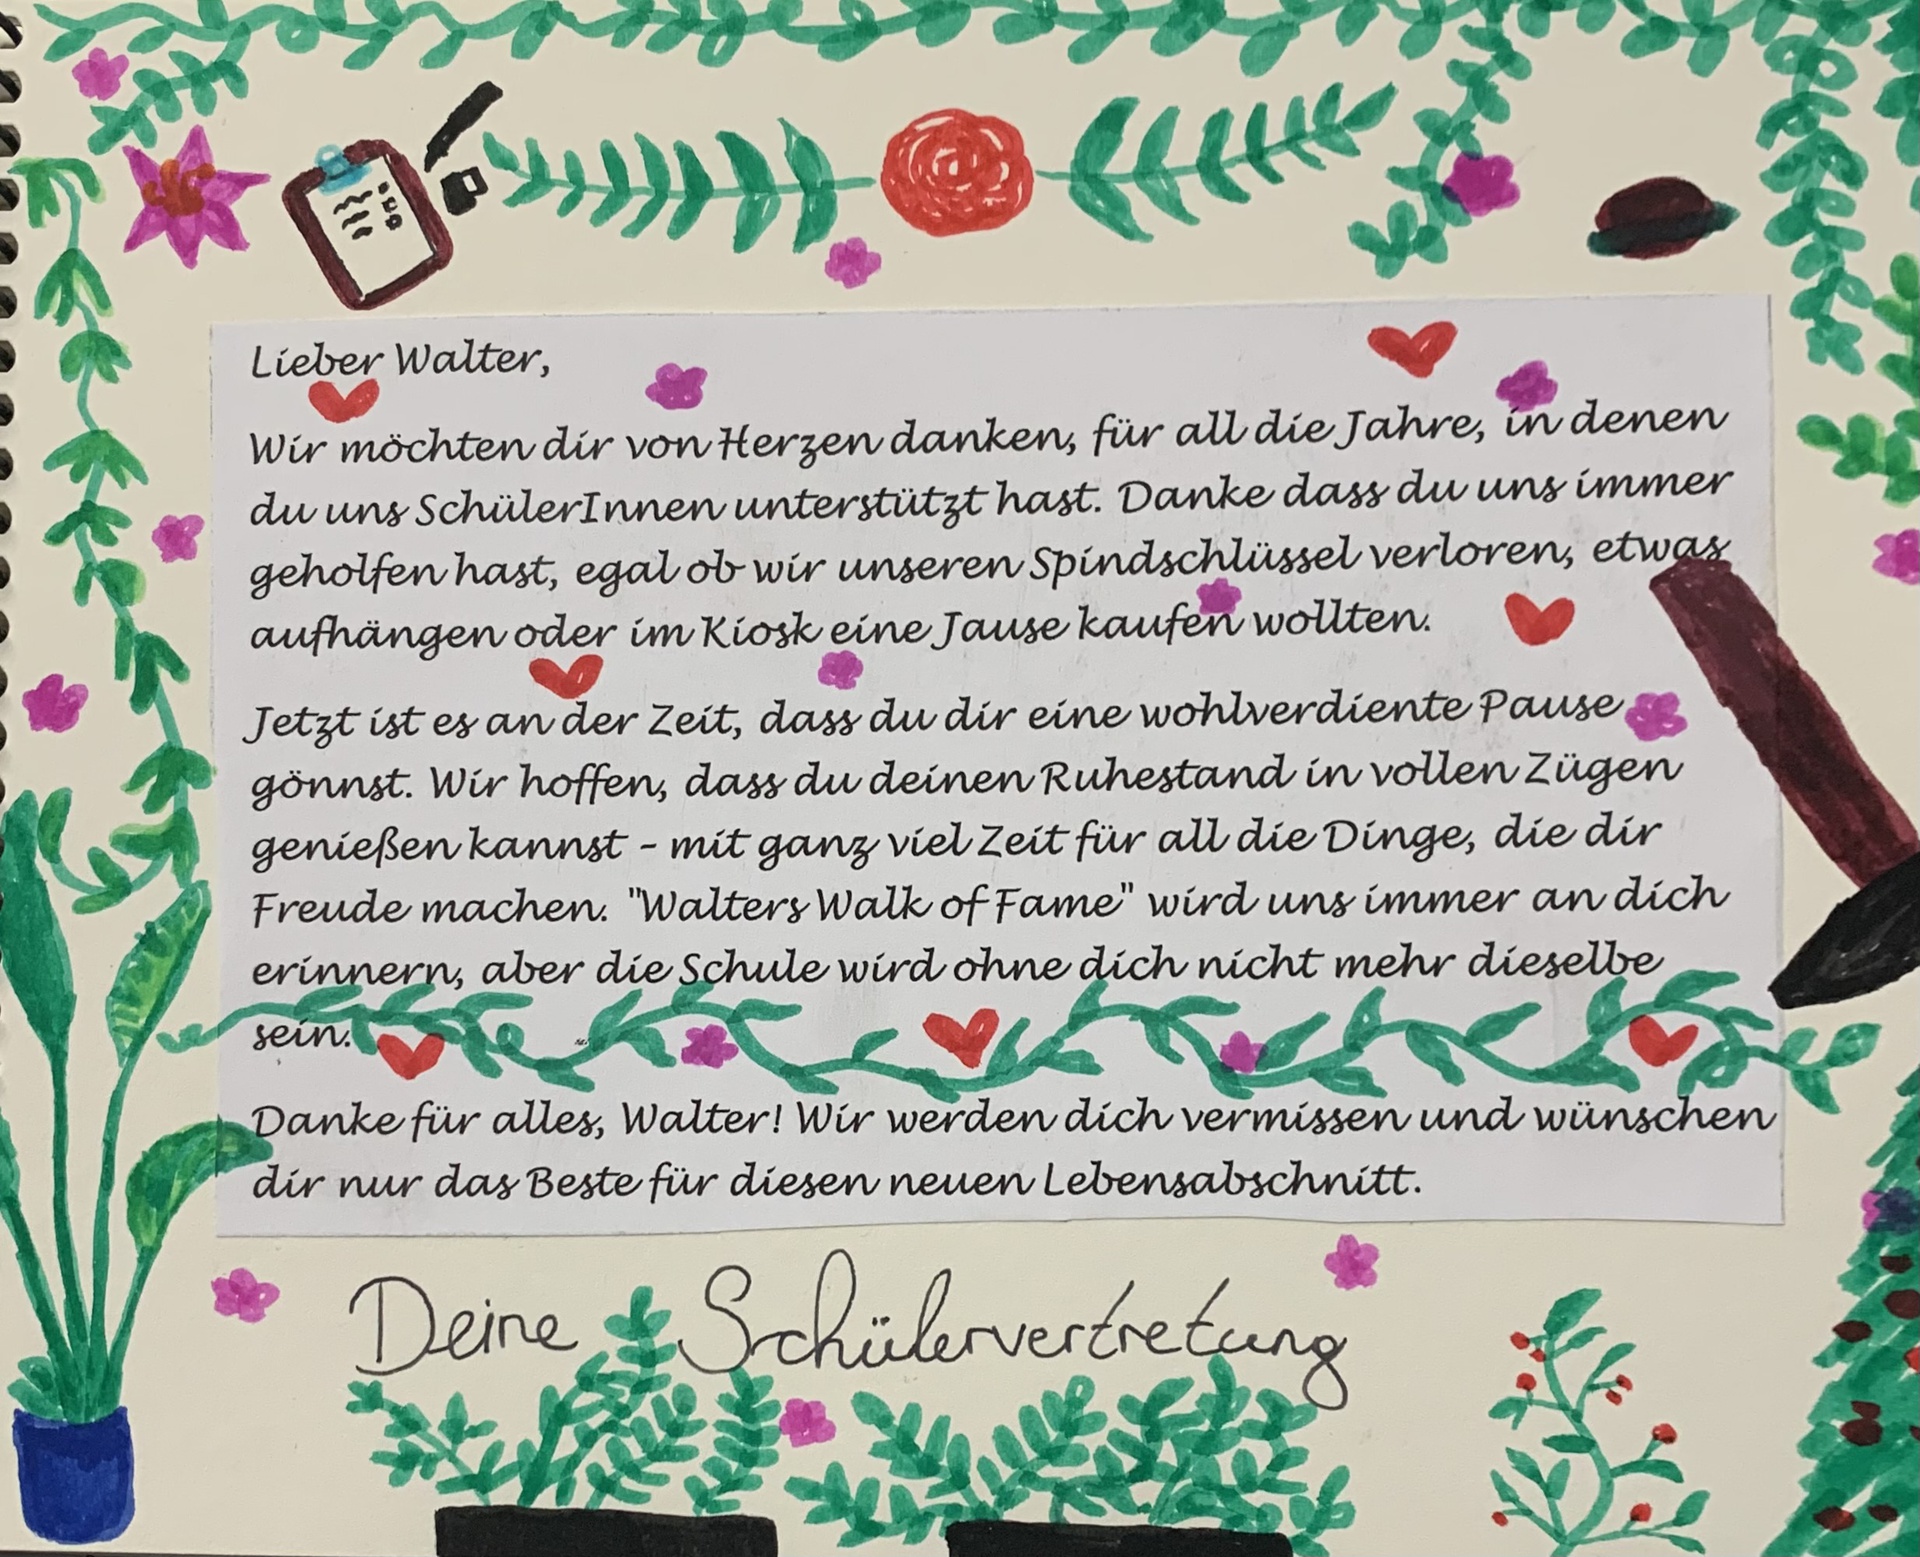 Lieber Walter,
Wir möchten dir von Herzen danken, für all die Jahre, in denen
du uns SchülerInnen unterstützt hast. Danke dass du uns immer
geholfen hast, egal ob wir unseren Spindschlüssel verloren, etwas
aufhängen oder im Kiosk eine Jause kaufen wollten.
Jetzt ist es an der Zeit, dass du dir eine wohlverdiente Pause
gönnst. Wir hoffen, dass du deinen Ruhestand in vollen Zügen
genießen kannst - mit ganz viel Zeit für all die Dinge, die dir
Freude machen. "Walters Walk of Fame" wird uns immer an dich
erinnern, aber die Schule wird ohne dich nicht mehr dieselbe
sein.
Danke für alles, Walter! Wir werden dich vermissen und wünschen
dir nur das Beste für diesen neuen Lebensabschnitt.
Deine Schülervertretung